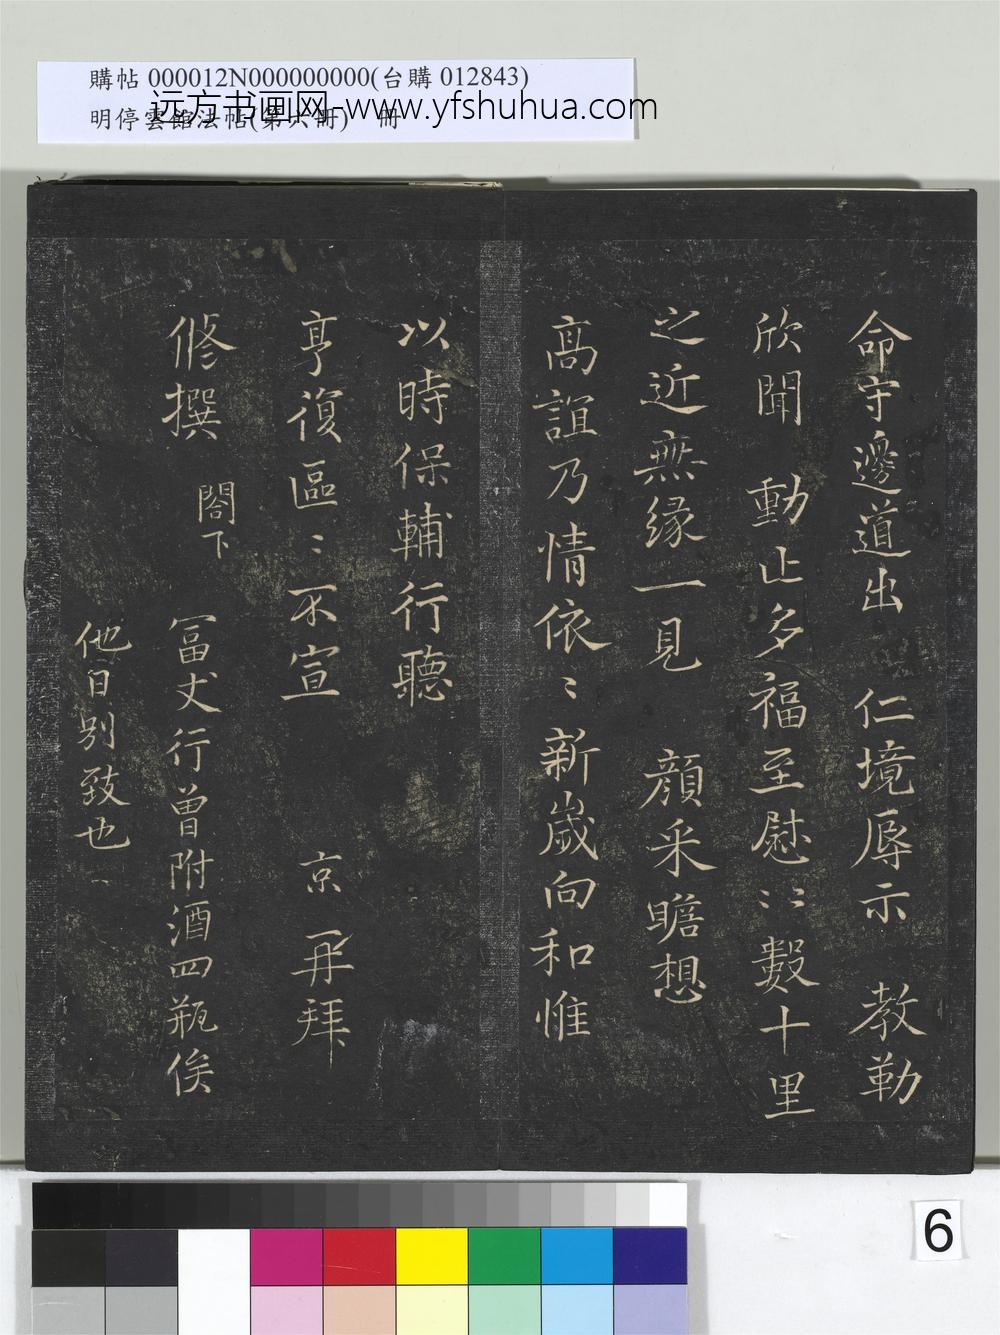 購帖 000012N000000000(台購 012843)
明停雲館法帖(第六冊) 冊
远方书画网-www.yfshuhua.com
命守邊道出 仁境辱示 教勒
欣聞 動止多福至慰⺀數十里
之近無緣一見 顏采瞻想
高誼乃情依⺀新歲向和惟
以時保輔行聽
亨復區⺀不宣 京再拜
修撰 閤下
冨丈行曾附酒四瓶俟
他日別致也
6